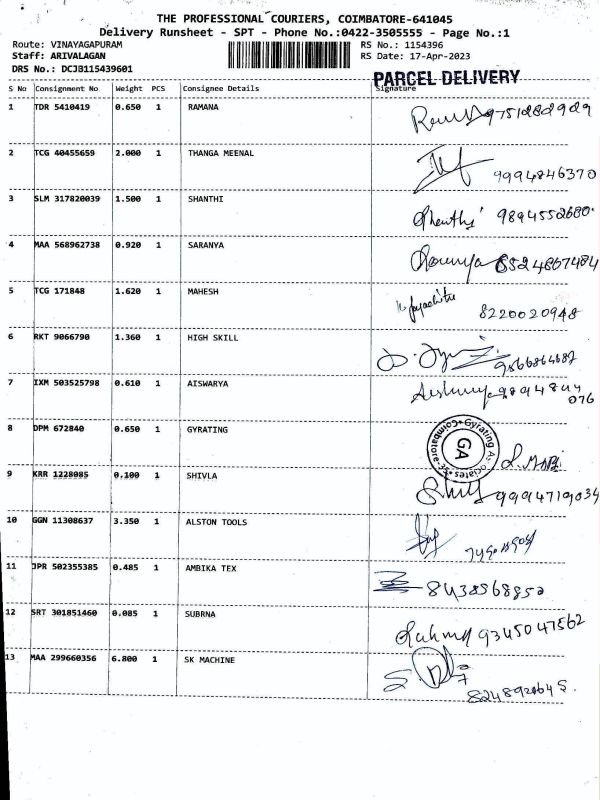 THE PROFESSIONAL COURIERS, COIMBATORE-641045
Delivery Runsheet - SPT - Phone No.:0422-3505555 - Page No.:1
Route: VINAYAGAPURAM RS No.: 1154396
Staff: ARIVALAGAN RS Date: 17-Apr-2023
DRS No.: DCJB115439601
PARCEL DELIVERY
S No Consignment No Weight PCS Consignee Details Signature
1 TDR 5410419 0.650 1 RAMANA 9751282929
2 TCG 40455659 2.000 1 THANGA MEENAL
9994846370
3 SLM 317820039 1.500 1 SHANTHI
Shanthi 9894552680
4 MAA 568962738 0.920 1 SARANYA
8524867484
5 TCG 171848 1.620 1 MAHESH
8220020948
6 RKT 9066790 1.360 1 HIGH SKILL
7 IXM 503525798 0.610 1 AISWARYA
8 DPM 672840 0.650 1 GYRATING
Gyrating Associates Coimbatore
GA
9 KRR 1228085 0.100 1 SHIVLA
9994719034
10 GGN 11308637 3.350 1 ALSTON TOOLS
11 JPR 502355385 0.485 1 AMBIKA TEX
8438568852
12 SRT 301851460 0.085 1 SUBRNA
9345047562
13 MAA 299660356 6.800 1 SK MACHINE